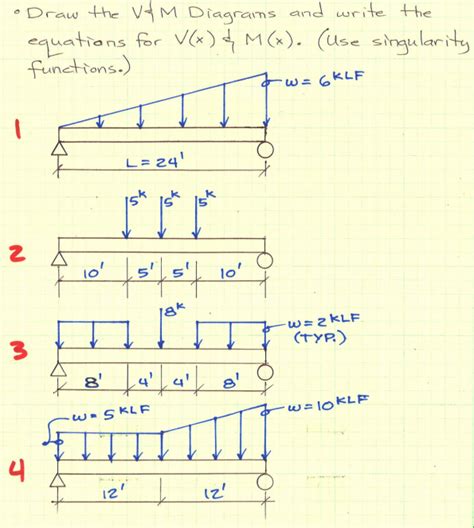 • Draw the V & M Diagrams and write the
equations for V(x) & M(x). (Use singularity
functions.)
w = 6 KLF
1
L = 24'
5k 5k 5k
2
10' 5' 5' 10'
8k
w = 2 KLF
(TYP.)
3
8' 4' 4' 8'
w = 5 KLF
w = 10 KLF
4
12' 12'